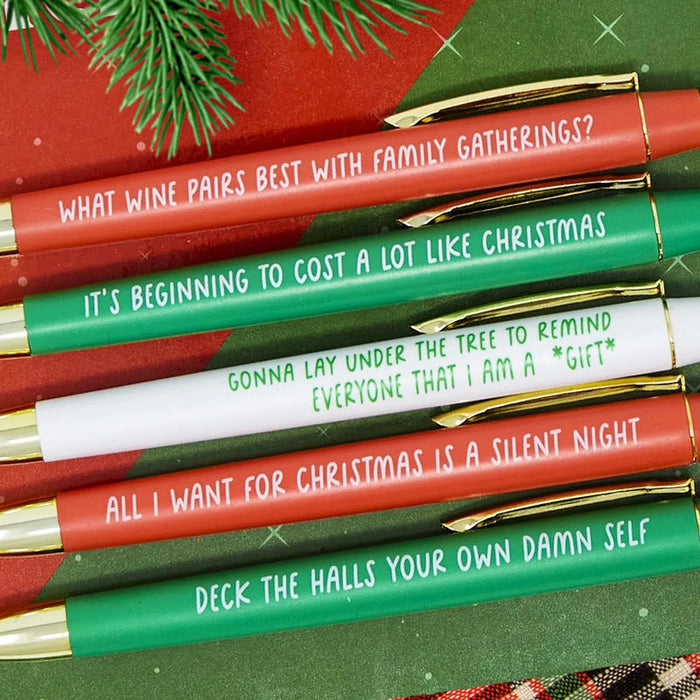 WHAT WINE PAIRS BEST WITH FAMILY GATHERINGS?
IT'S BEGINNING TO COST A LOT LIKE CHRISTMAS
GONNA LAY UNDER THE TREE TO REMIND
EVERYONE THAT I AM A *GIFT*
ALL I WANT FOR CHRISTMAS IS A SILENT NIGHT
DECK THE HALLS YOUR OWN DAMN SELF